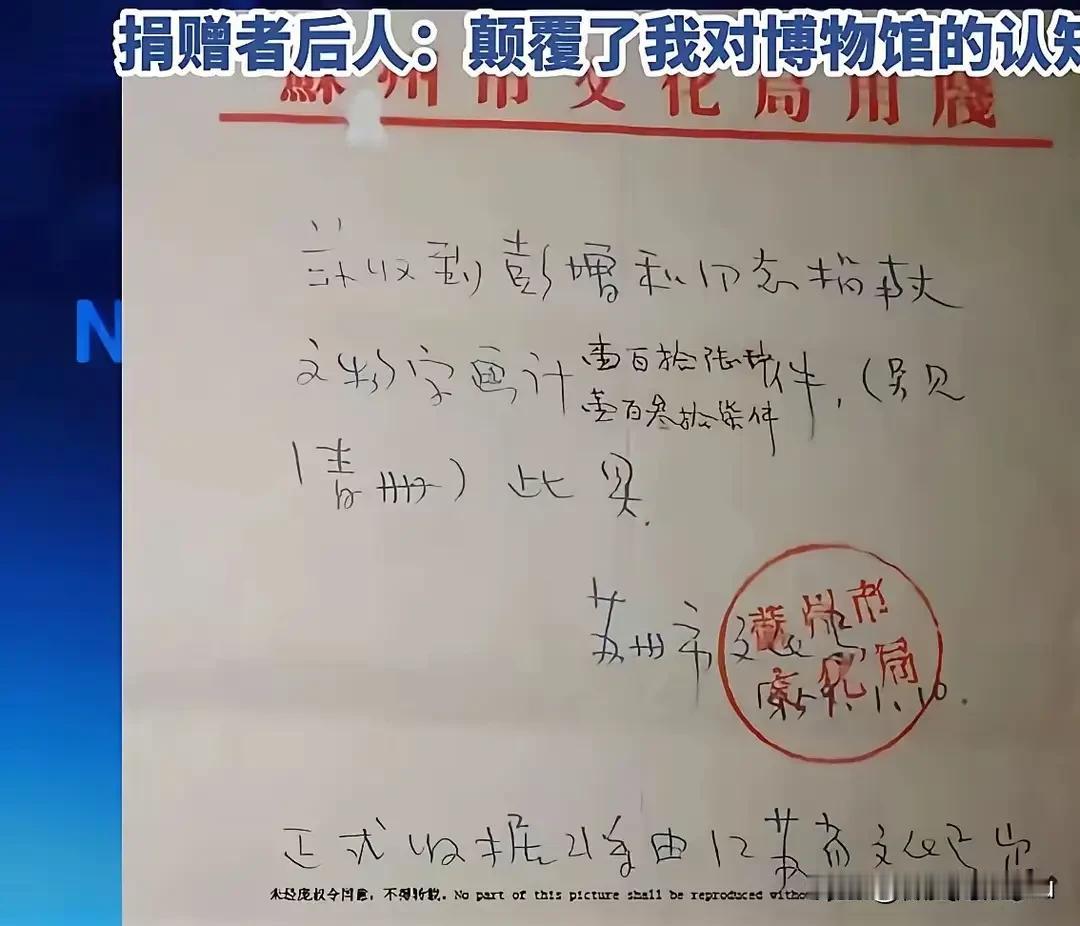 捐赠者后人：颠覆了我对博物馆的认知
蘇州市文化局用牋
兹收到彭增和同志捐献
文物字画计壹百拾陆件，（另见
壹百叁拾柒件
清册）此具
苏州市文化局
1959.1.10.
蘇州市文化局
正式收据将由江苏省文化局出
未经庞叔令同意，不得转载。No part of this picture shall be reproduced witho
N